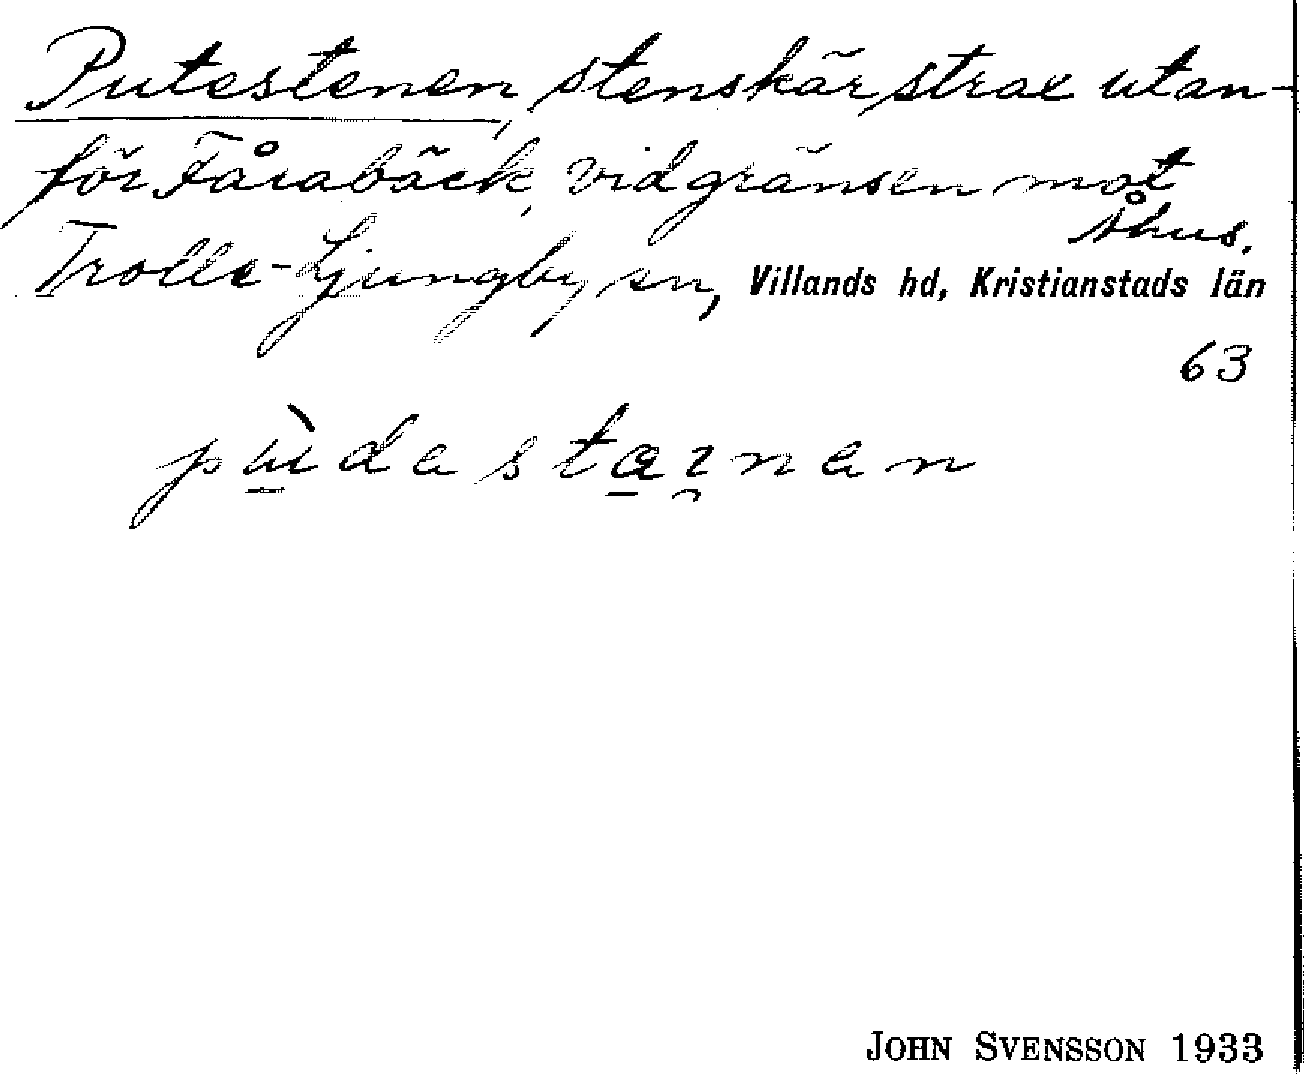 Putestenen, stenskär strax utan-
för Fårabäck, vid gränsen mot
Åhus.
Trolle-Ljungby sn, Villands hd, Kristianstads län
63
JOHN SVENSSON 1933